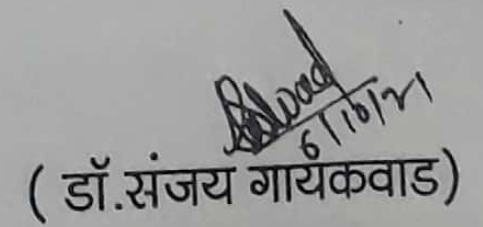 6/10/21
( डॉ.संजय गायकवाड)